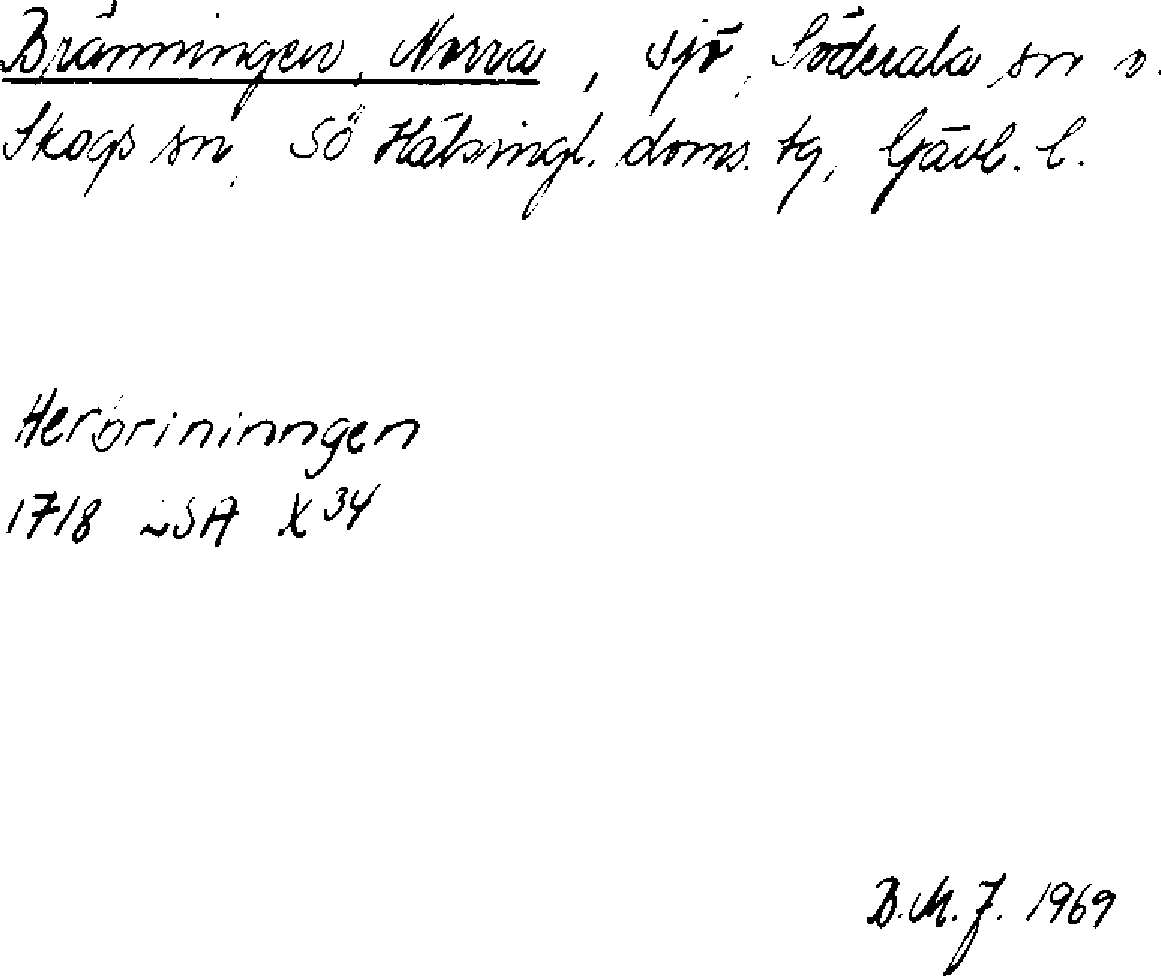 Bränningen, Norra, sjö, Söderala sn o.
Skogs sn, SÖ Hälsingl. doms. tg, Gävl. l.
Herbrininngen
1718 LSA X 34
B.M.J. 1969